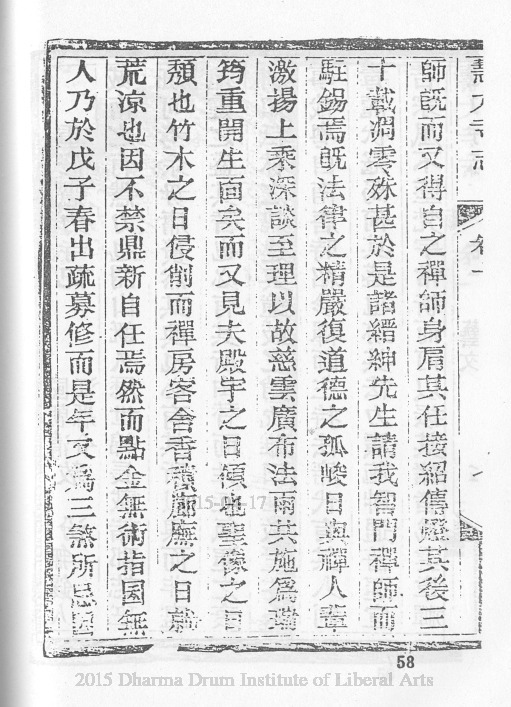 師既而又得自之禪師身肩其任接紹傳燈其後三
十載凋雲殊甚於是諸縉紳先生請我智門禪師而
駐錫焉既法律之精嚴復道德之孤峻日與禪人輩
激揚上乘深談至理以故慈雲廣布法雨共施為瑞
筠重開生面矣而又見夫殿宇之日傾也聖像之日
頹也竹木之日侵削而禪房客舍香積廊廡之日就
荒涼也因不禁鼎新自任焉然而點金無術指囷無
人乃於戊子春出疏募修而是年又為三煞所忌
寺志
卷一
58
2015 Dharma Drum Institute of Liberal Arts